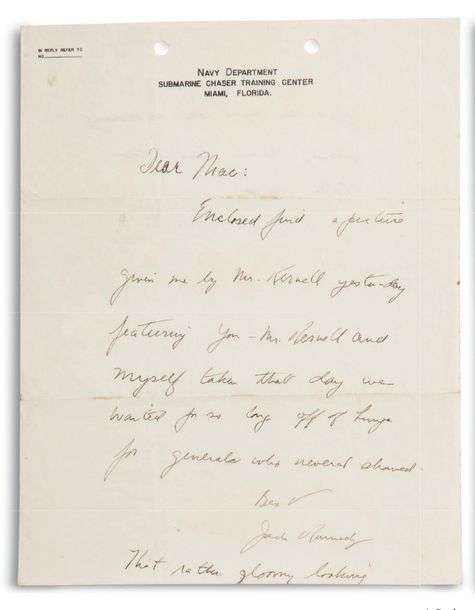 IN REPLY REFER TO
NO.
NAVY DEPARTMENT
SUBMARINE CHASER TRAINING CENTER
MIAMI, FLORIDA.
Dear Mac:
Enclosed find a picture
given me by Mr. yesterday
featuring You - Mr. and
myself taken that day we
waited for so long off of
for generals who never showed.
Best
Jack Kennedy
That rather gloomy looking